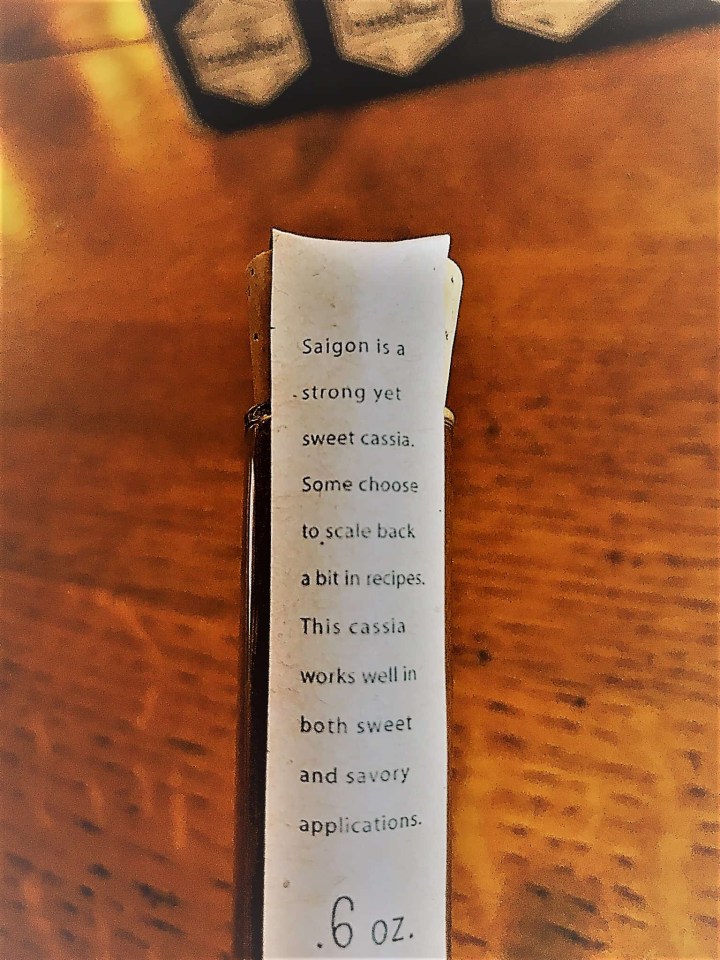 Saigon is a
strong yet
sweet cassia.
Some choose
to scale back
a bit in recipes.
This cassia
works well in
both sweet
and savory
applications.
.6 oz.